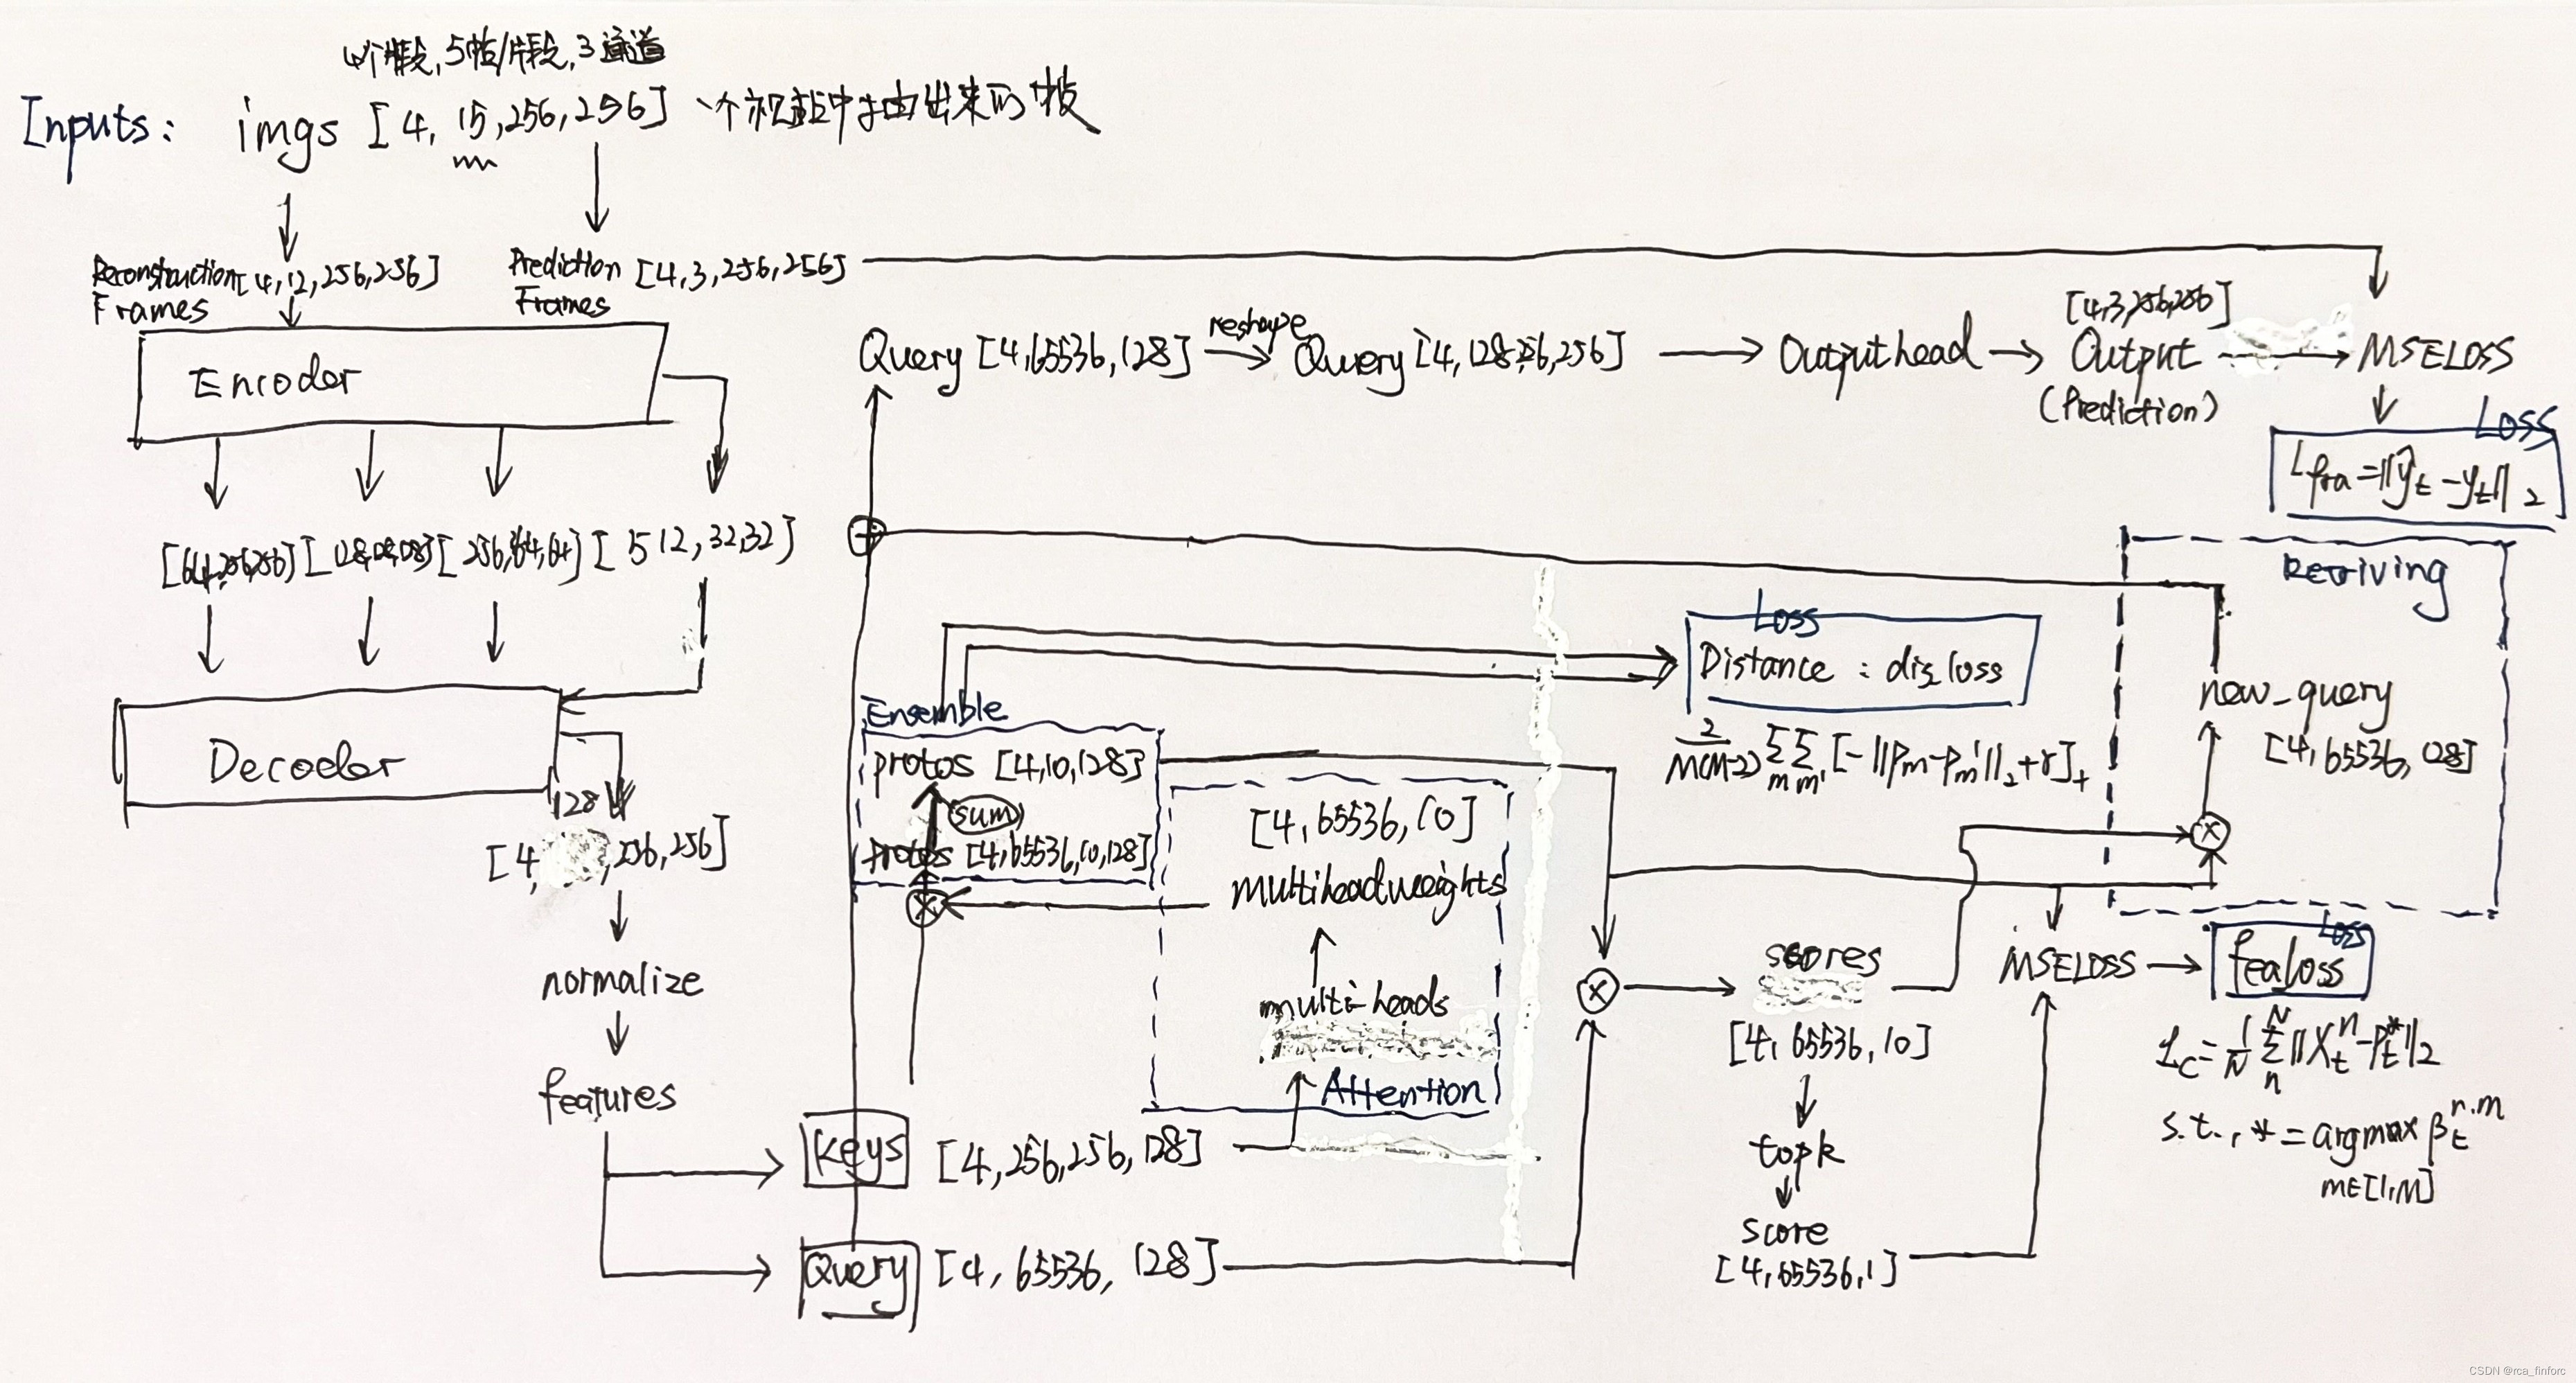 4个片段,5帧/片段,3通道
Inputs: imgs [4, 15,256,256] 一个视频中抽出来的帧
Reconstruction [4,12,256,256]
Frames
Prediction [4,3,256,256]
Frames
Encoder
[64,256,256] [128,128,128] [256,64,64] [512,32,32]
Decoder
128
[4, ,256,256]
normalize
features
Keys [4,256,256,128]
Query [4,65536,128]
Query [4,65536,128] reshape Query [4,128,256,256] Outputhead
[4,3,256,256]
Output
(Prediction)
MSELOSS
Loss
Lfra=||ŷt-yt||2
Retriving
new_query
[4,65536,128]
Loss
Distance : dis_loss
2/M(M-2) Σm Σm' [-||Pm-Pm'||2+r]+
Ensemble
protos [4,10,128]
sum
protos [4,65536,10,128]
[4,65536,10]
multiheadweights
multi-heads
Attention
scores
[4,65536,10]
topk
score
[4,65536,1]
MSELOSS
Loss
fealoss
Lc=1/N Σn^N ||Xt^n-Pt^*||2
s.t., *=argmax βt^n.m
m∈[1,M]
CSDN @rca_finforc